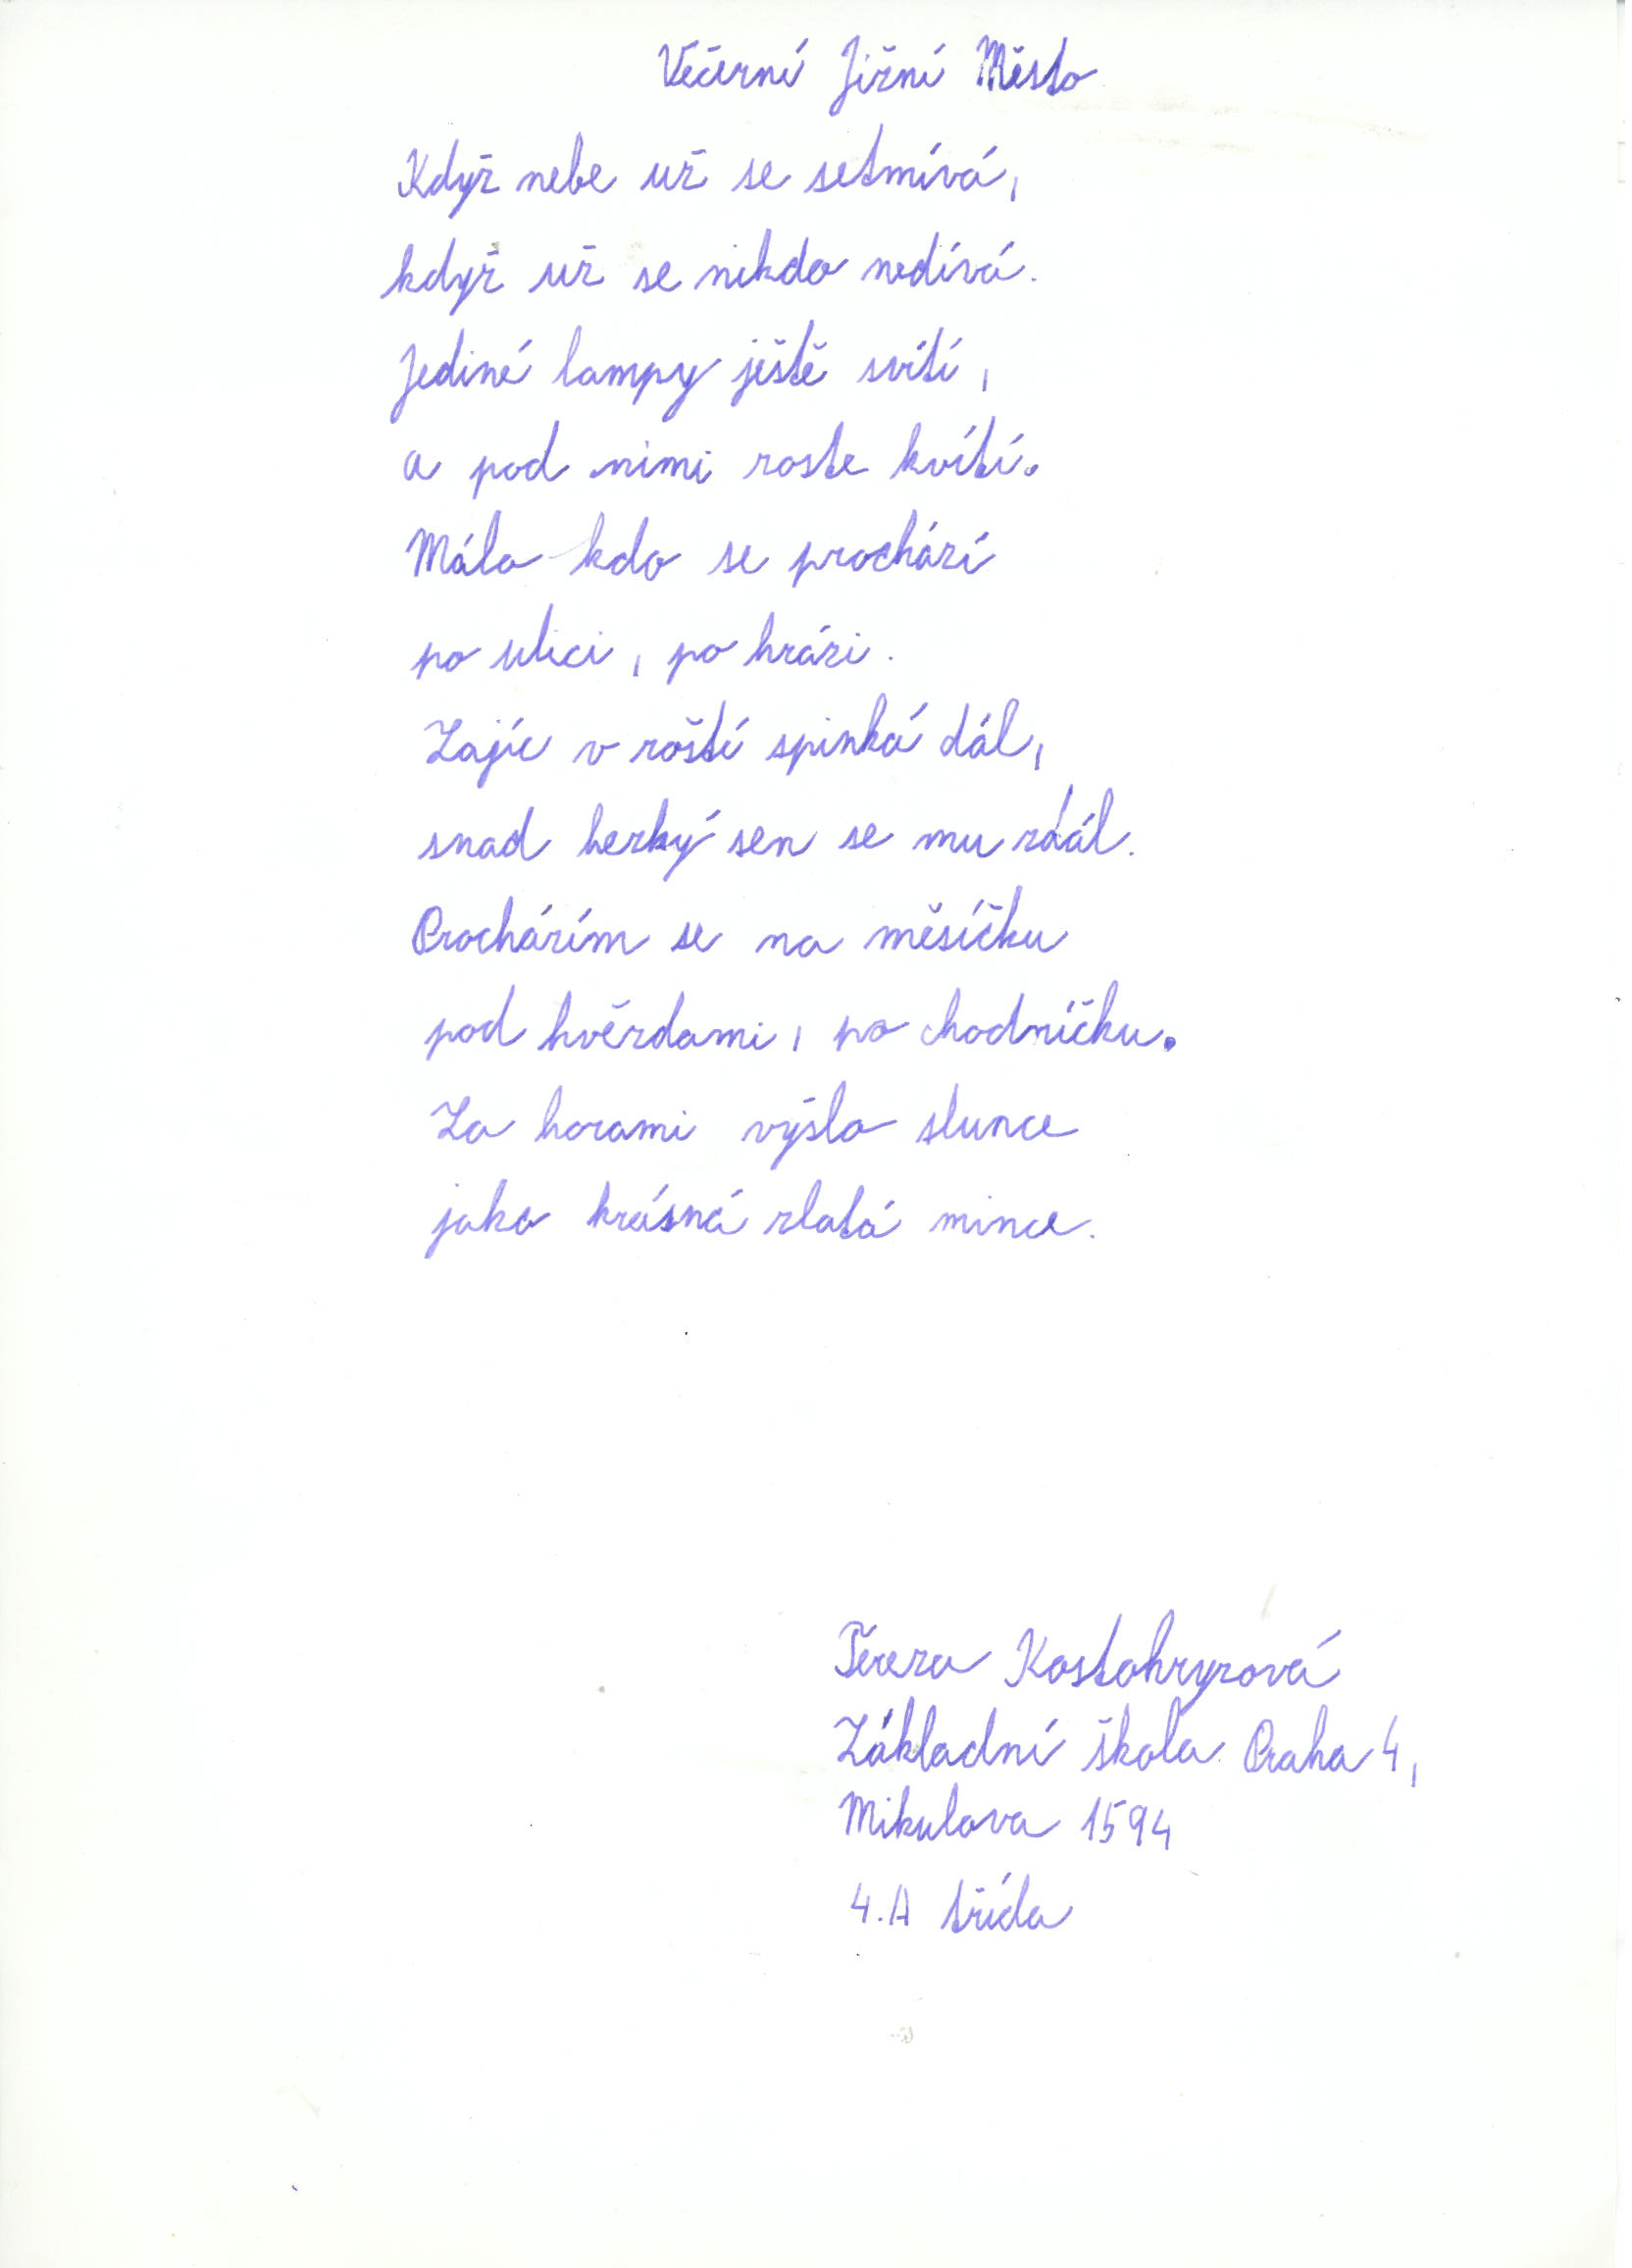 Večerní Jižní Město
Když nebe už se setmívá,
když už se nikdo nedívá.
Jediné lampy ještě svítí,
a pod nimi roste kvítí.
Málo kdo se prochází
po ulici, po hrázi.
Zajíc v roští spinká dál,
snad hezký sen se mu zdál.
Procházím se na měsíčku
pod hvězdami, po chodníčku.
Za horami výšlo slunce
jako krásná zlatá mince.
Tereza Kostohryzová
Základní škola Praha 4,
Mikulova 1594
4.A třída